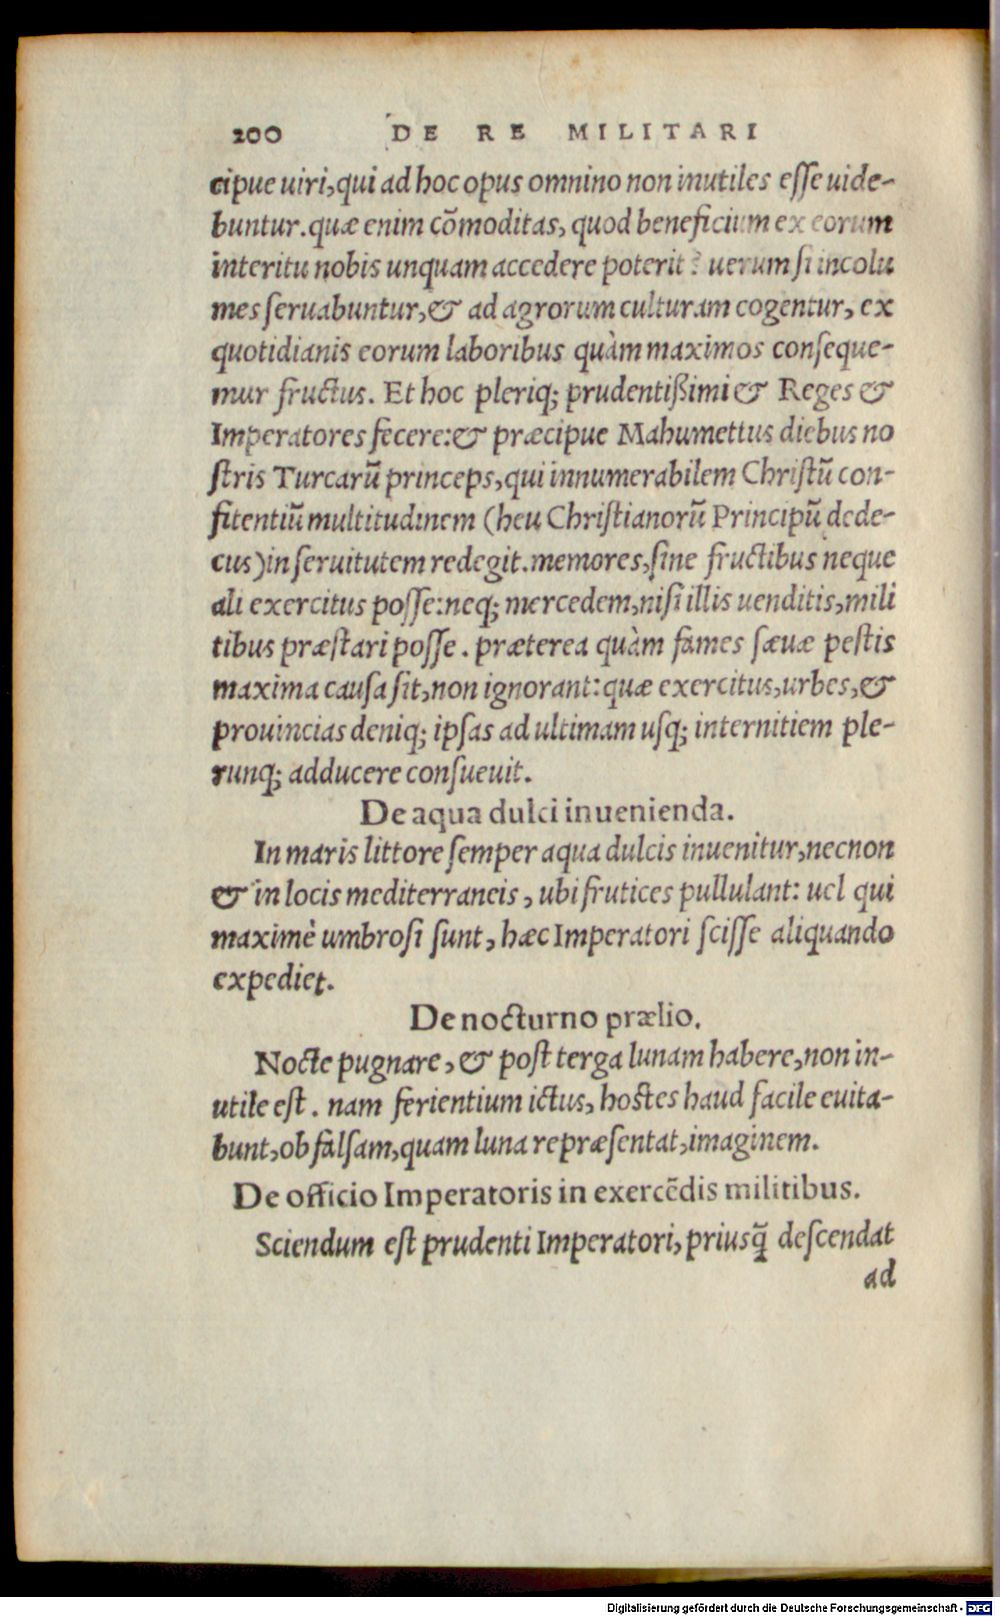 200 DE RE MILITARI
cipue uiri, qui ad hoc opus omnino non inutiles esse uide-
buntur. quæ enim cõmoditas, quod beneficium ex eorum
interitu nobis unquam accedere poterit? uerum si incolu
mes seruabuntur, & ad agrorum culturam cogentur, ex
quotidianis eorum laboribus quàm maximos conseque-
mur fructus. Et hoc pleriq; prudentißimi & Reges &
Imperatores fecere: & præcipue Mahumettus diebus no
stris Turcarũ princeps, qui innumerabilem Christũ con-
fitentiũ multitudinem (heu Christianorũ Principũ dede-
cus) in seruitutem redegit. memores, sine fructibus neque
ali exercitus posse: neq; mercedem, nisi illis uenditis, mili
tibus præstari posse. præterea quàm fames sæuæ pestis
maxima causa sit, non ignorant: quæ exercitus, urbes, &
prouincias deniq; ipsas ad ultimam usq; internitiem ple-
runq; adducere consueuit.
De aqua dulci inuenienda.
In maris littore semper aqua dulcis inuenitur, necnon
& in locis mediterraneis, ubi frutices pullulant: uel qui
maximè umbrosi sunt, hæc Imperatori scisse aliquando
expediet.
De nocturno prælio.
Nocte pugnare, & post terga lunam habere, non in-
utile est. nam ferientium ictus, hostes haud facile euita-
bunt, ob falsam, quam luna repræsentat, imaginem.
De officio Imperatoris in exercẽdis militibus.
Sciendum est prudenti Imperatori, priusq̃ descendat
ad
Digitalisierung gefördert durch die Deutsche Forschungsgemeinschaft - DFG